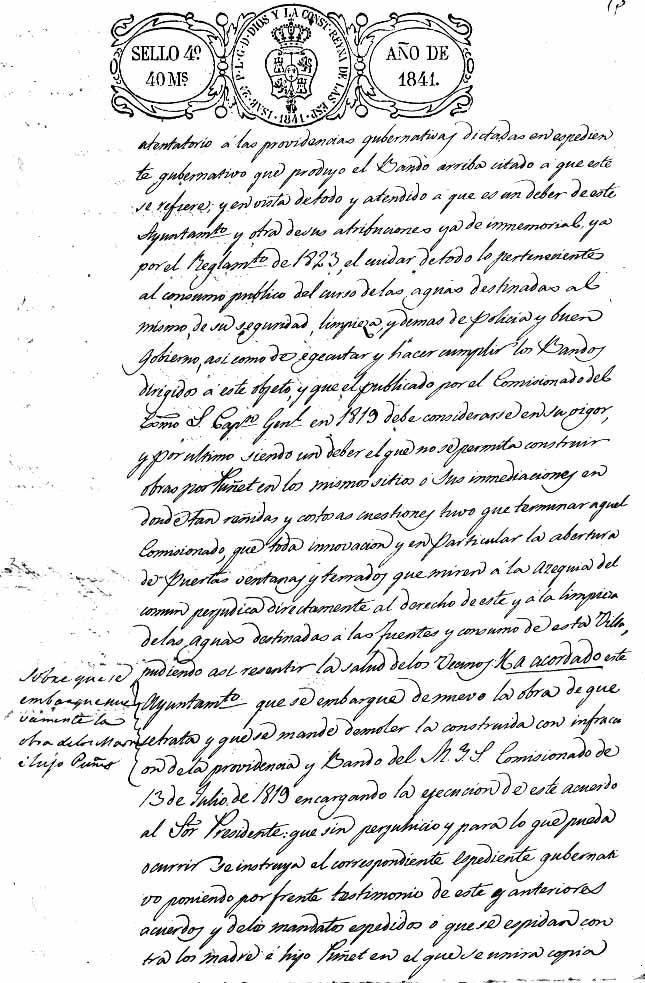 SELLO 4º
40 Ms
ISAB. 2ª P. L. G. D. DIOS Y LA CONST. REYNA DE LAS ESP.
1841
AÑO DE
1841.
atentatorio á las providencias gubernativas dictadas en espedien
te gubernativo que produjo el Bando arriba citado á que este
se refiere; y en vista de todo y atendido á que es un deber de este
Ayuntamto y otra de sus atribuciones ya de inmemorial, ya
por el Reglamto de 1823, el cuidar de todo lo perteneciente
al consumo publico del curso de las aguas destinadas al
mismo, de su seguridad, limpieza, y demas de Policia y buen
Gobierno, asi como de egecutar y hacer cumplir los Bandos
dirigidos á este objeto, y que el publicado por el Comisionado del
Escmo S. Capn Genl en 1819 debe considerarse en su vigor,
y por ultimo siendo un deber el que no se permita construir
obras por Puñet en los mismos sitios ó sus inmediaciones en
donde tan reñidas y costosas cuestiones tuvo que terminar aquel
Comisionado, que toda innovacion y en particular la abertura
de Puertas ventanas y terrados que miren á la Azequia del
comun perjudica directamente al derecho de este y á la limpieza
de las aguas destinadas á las fuentes y consumo de esta Villa,
pudiendo asi resentir la salud de los Vecinos Ha acordado este
Ayuntamto que se embargue de nuevo la obra de que
se trata y que se mande demoler la construida con infracci
on de la providencia y Bando del M. Y. S. Comisionado de
13 de Julio de 1819 encargando la ejecucion de este acuerdo
al Sor Presidente: que sin perjuhicio y para lo que pueda
ocurrir se instruya el correspondiente espediente gubernati
vo poniendo por frente testimonio de este y anteriores
acuerdos y de los mandatos espedidos ó que se espidan con
tra los madre é hijo Puñet en el que se unira copia
Sobre que se
embargue nue
vamente la
obra de los Madre
é hijo Puñet